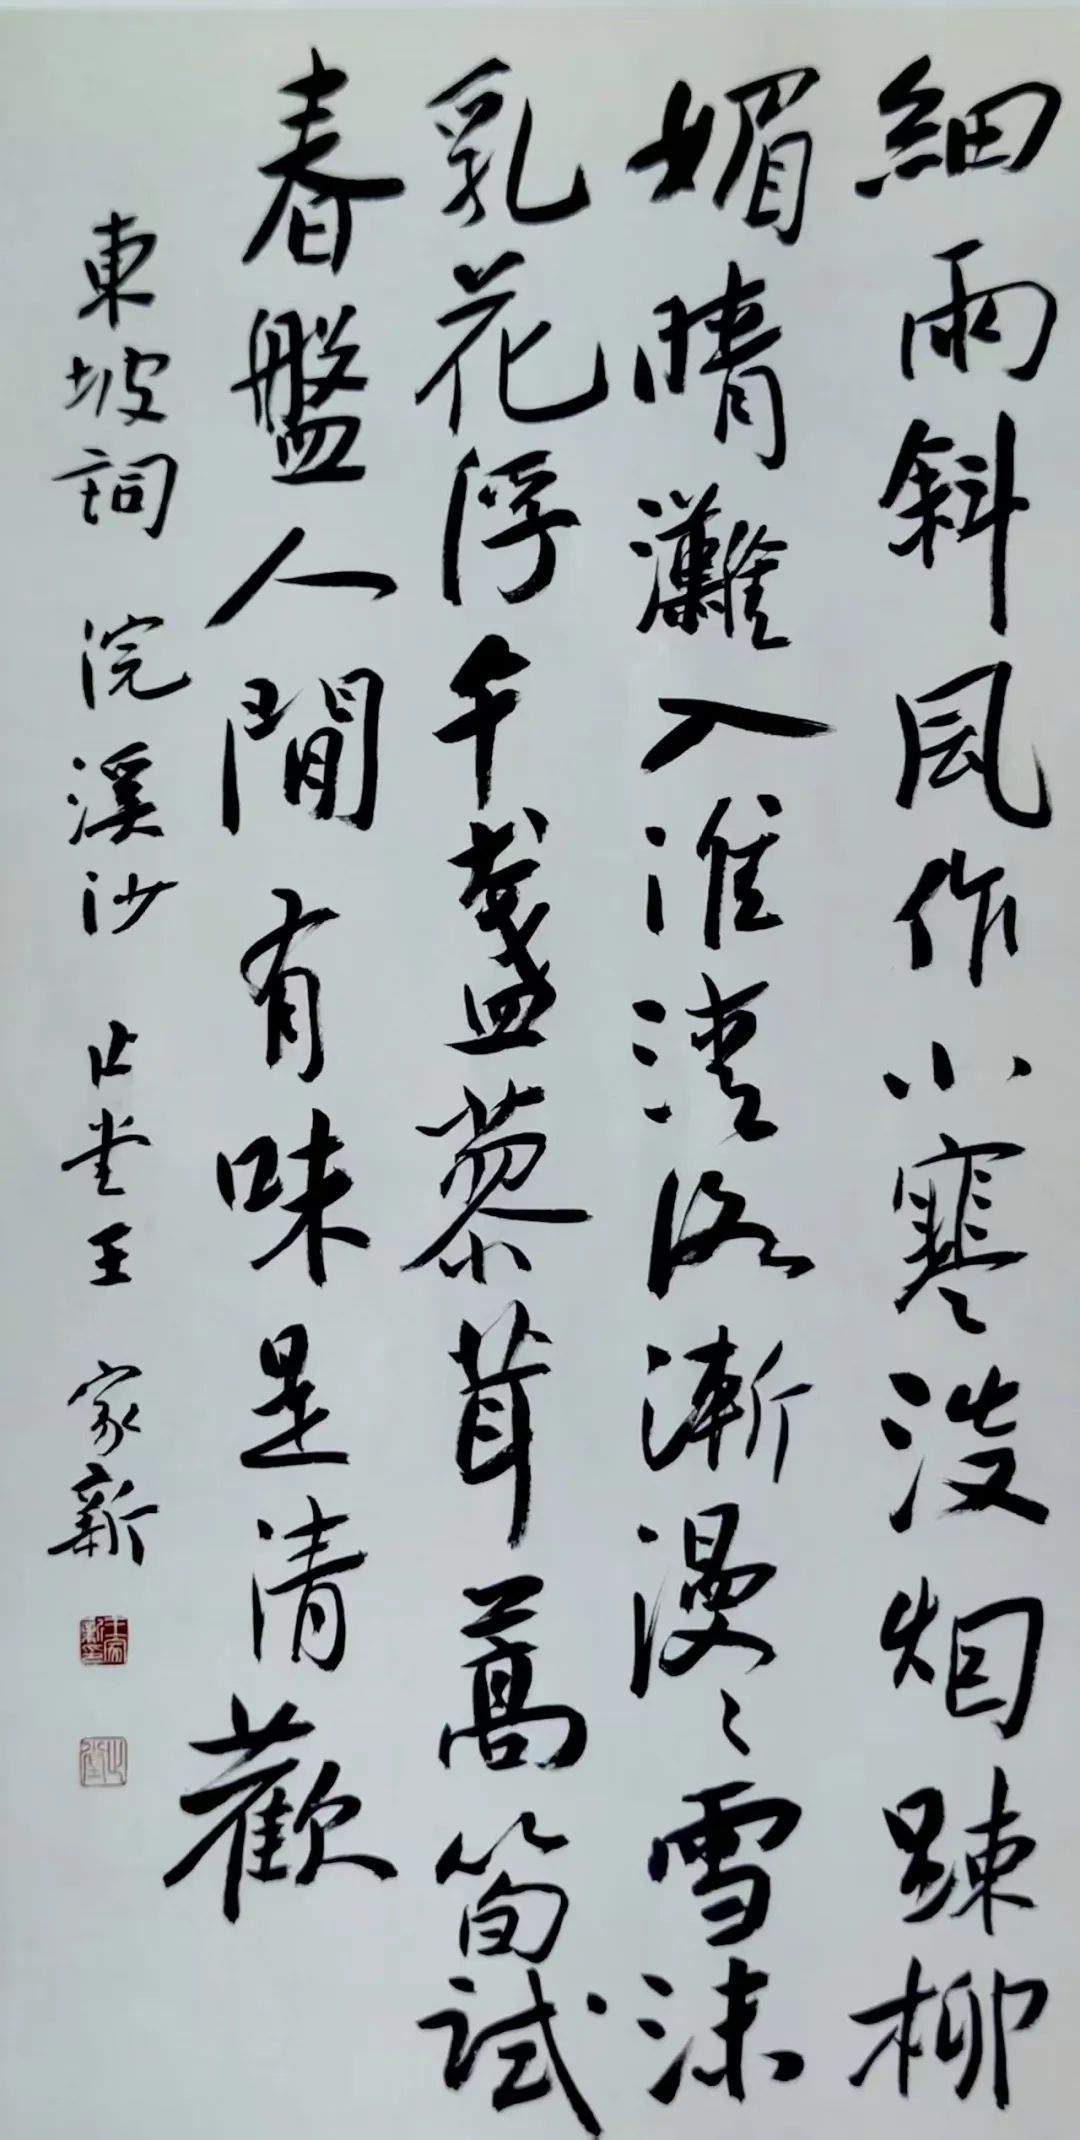 細雨斜風作小寒淡烟踈柳
媚晴灘入淮清洛漸漫々雪沫
乳花浮午盞蓼茸蒿筍試
春盤人間有味是清歡
東坡詞 浣溪沙 止堂王家新
王家新印
止堂